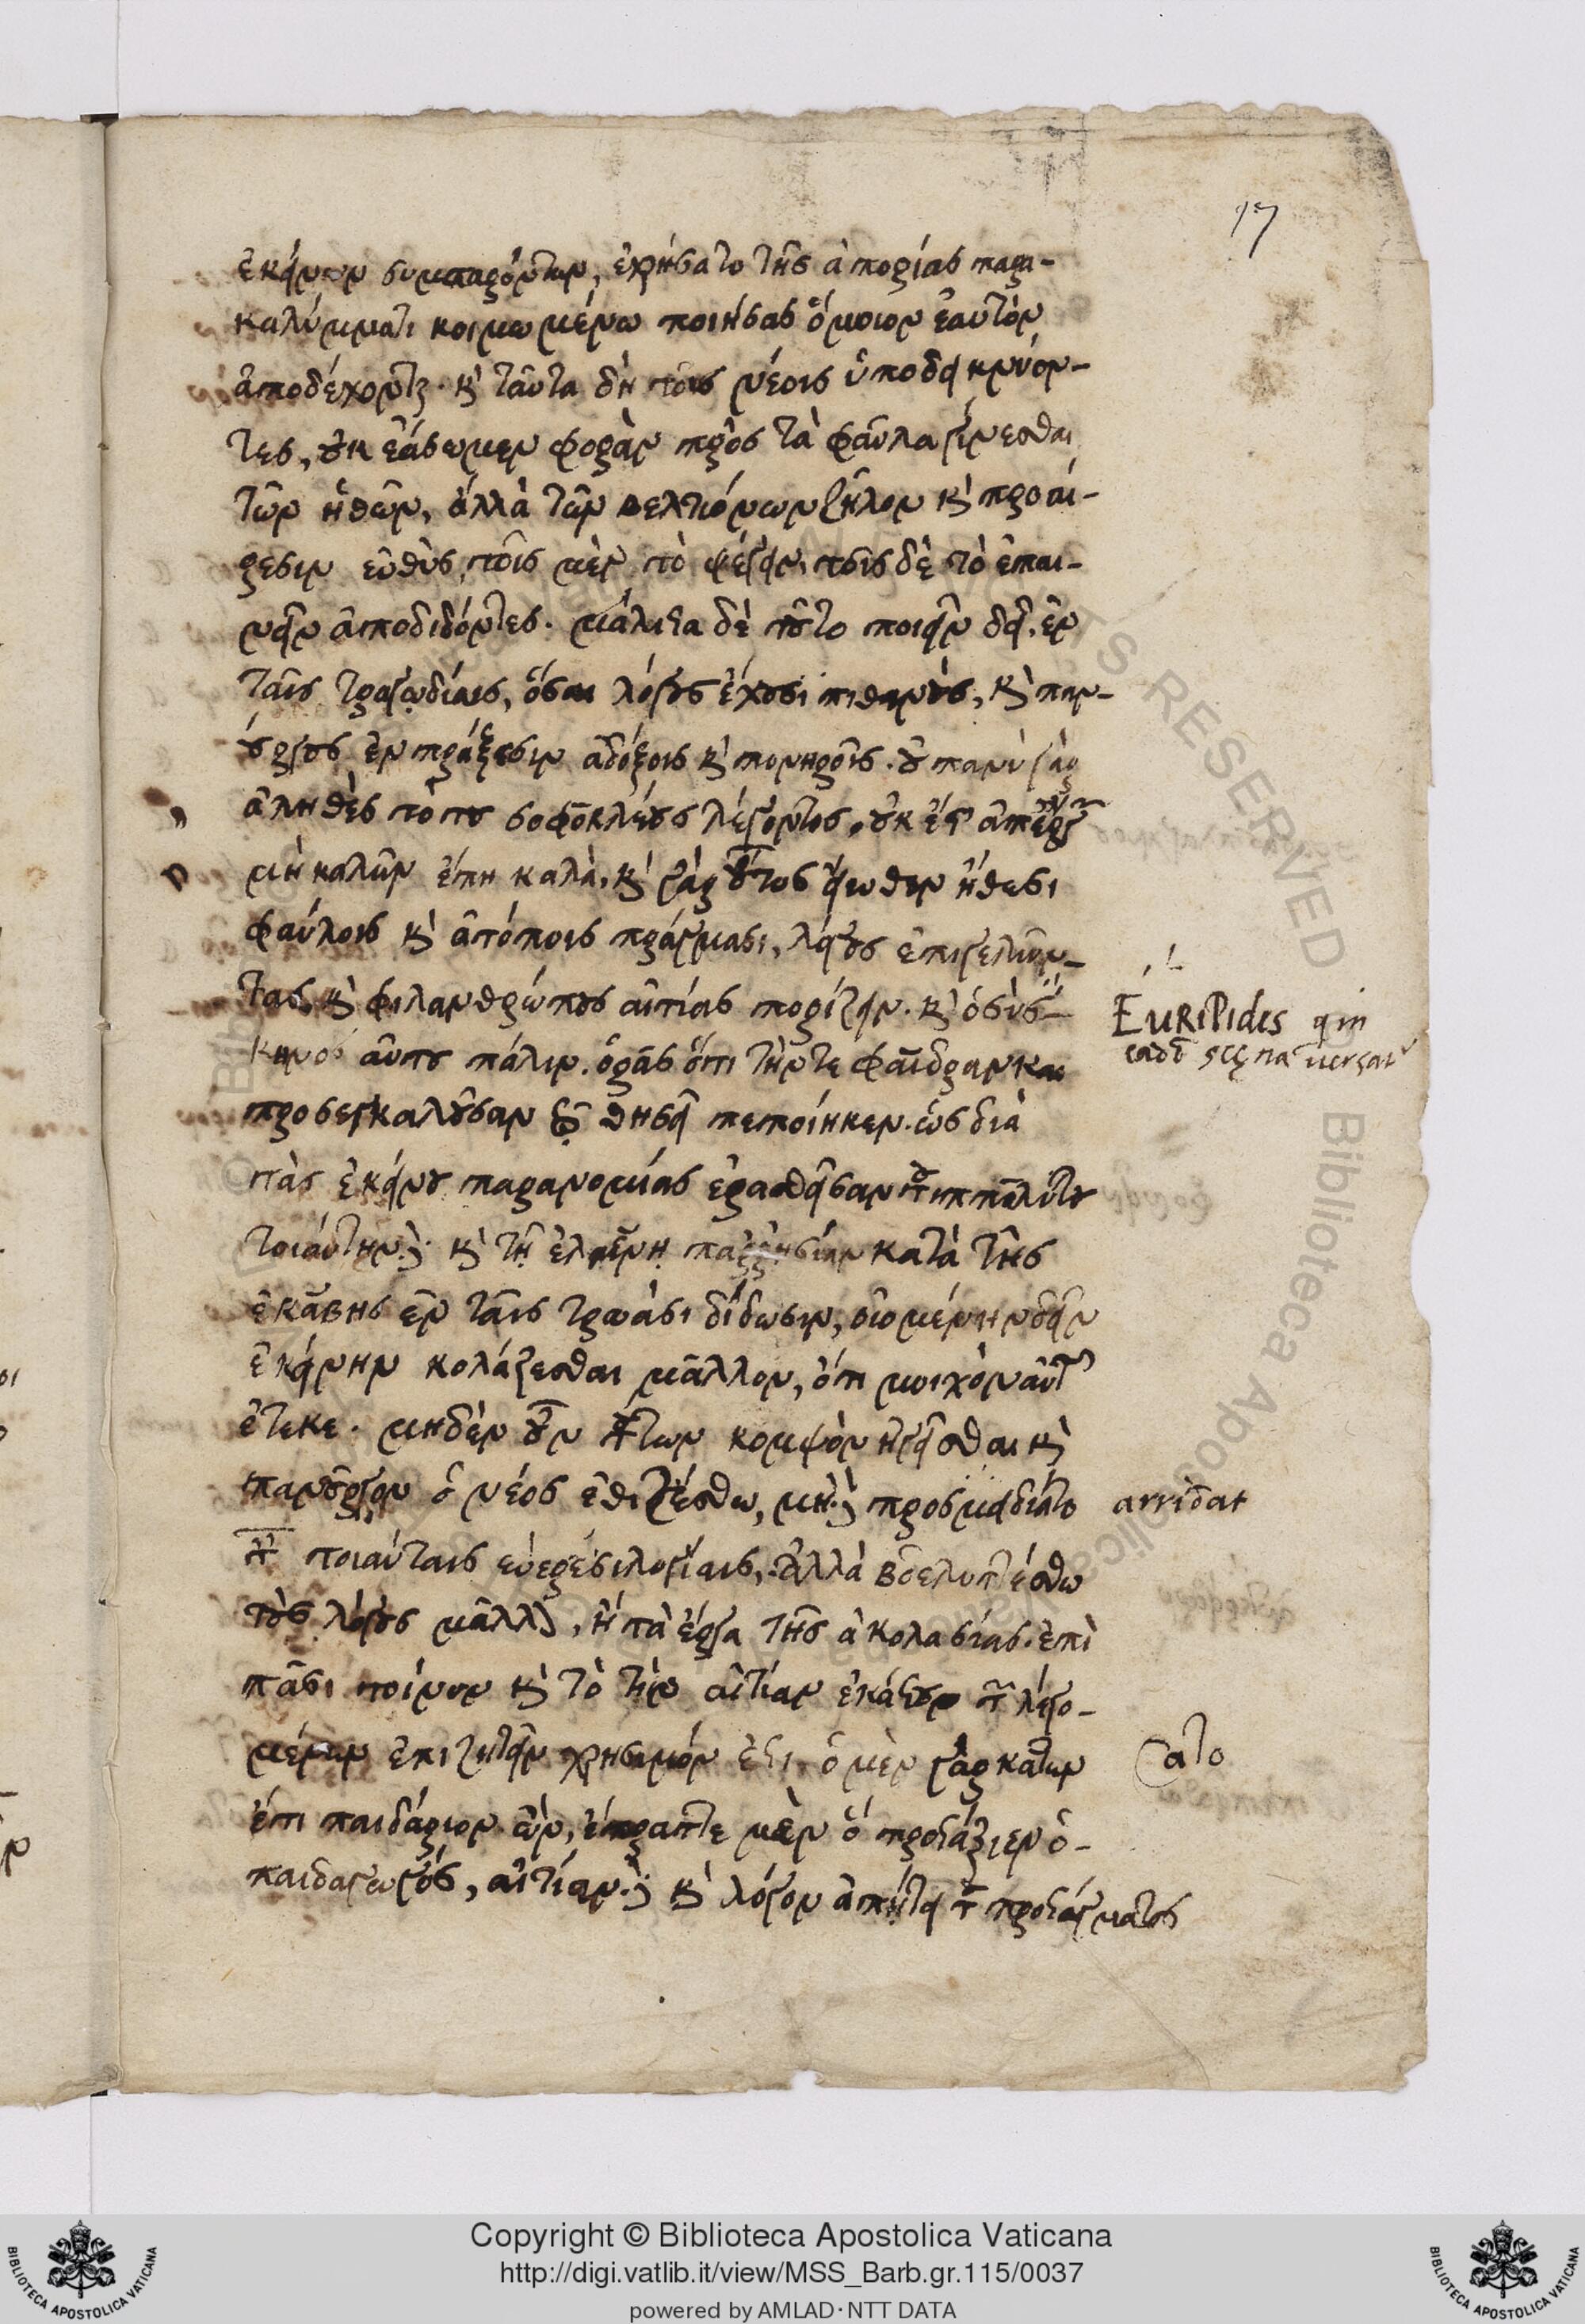 17
ἐκείνων συμπαρόντων, ἐχρήσατο τῆς ἀπορίας παρα-
καλύμματι κοιμωμένω ποιήσας ὅμοιον ἑαυτὸν
ἀποδέχοντ. κὶ ταῦτα δὴ τοῖς νέοις ὑποδεικνύον-
τες, οὐκ ἐάσωμεν φορὰν πρὸς τὰ φαῦλα γίνεσθαι
τῶν ἠθῶν, ἀλλὰ τῶν βελτιόνων ζῆλον κὶ προαί-
ρεσιν εὐθὺς, τοῖς μὲν τὸ ψέγειν, τοῖς δὲ τὸ ἐπαι-
νεῖν ἀποδιδόντες. μάλιστα δὲ τοῦτο ποιεῖν δεῖ, ἐν
ταῖς τραγωδίαις, ὅσαι λόγους ἔχουσι πιθανοὺς, κὶ παν-
ούργους ἐν πράξεσιν ἀδόξοις κὶ πονηροῖς. οὐ πανὺ γὰρ
ἀληθὲς τὸ του σοφοκλέους λέγοντος, οὐκ ἔστ' ἀπ' ἔργων
μὴ καλῶν ἔπη καλὰ, κὶ γὰρ οὗτος εἴωθεν ἤθεσι
φαύλοις κὶ ἀτόποις πράγμασι, λόγους ἐπιγελῶν-
τας, κὶ φιλανθρώπους αἰτίας πορίζειν. κὶ ὁ σύς-
κηνος αὐτου πάλιν. ὁρᾶς ὅτι τήν τε φαῖδραν και
προσεγκαλοῦσαν τῶ θησεῖ πεποίηκεν. ὡς διὰ
τὰς ἐκείνου παρανομίας ἐρασθεῖσαν τοῦ ἱππολύτου
τοιαύτην δὲ κὶ τῆ ἑλένη παρρησίαν κατὰ τῆς
ἑκάβης ἐν ταῖς τρωάσι δίδωσιν, οἰομένην δεῖν
ἐκείνην κολάζεσθαι μᾶλλον, ὅτι μοιχὸν αὐτ
ἔτεκε. μηδὲν οὖν τούτων κομψὸν ἡγεῖσθαι κὶ
πανοῦργον ὁ νέος ἐθιζέσθω, μὴ δὲ προσμειδιάτο
τ τοιαύταις εὑρεσιλογίαις, ἀλλὰ βδελυττέσθω
τοὺς λόγους μᾶλλον, ἢ τὰ ἔργα τῆς ἀκολασίας. ἐπὶ
πᾶσι τοίνυν κὶ τὸ τὴν αἰτίαν ἑκάστου τῶν λεγο-
μένων ἐπιζητεῖν χρήσιμόν ἐστι, ὁ μὲν γὰρ κάτων
ἔτι παιδάριον ὢν, ἔπραττε μὲν ὃ προστάξιεν ὁ-
παιδαγωγός, αἰτίαν δὲ κὶ λόγον ἀπήτει τοῦ προστάγματος
EURIPIdes qui
eadē scęna uersat
arrideat
Cato
ALL RIGHTS RESERVED
© Biblioteca Apostolica Vaticana
BIBLIOTECA APOSTOLICA VATICANA
Copyright © Biblioteca Apostolica Vaticana
http://digi.vatlib.it/view/MSS_Barb.gr.115/0037
powered by AMLAD·NTT DATA
BIBLIOTECA APOSTOLICA VATICANA